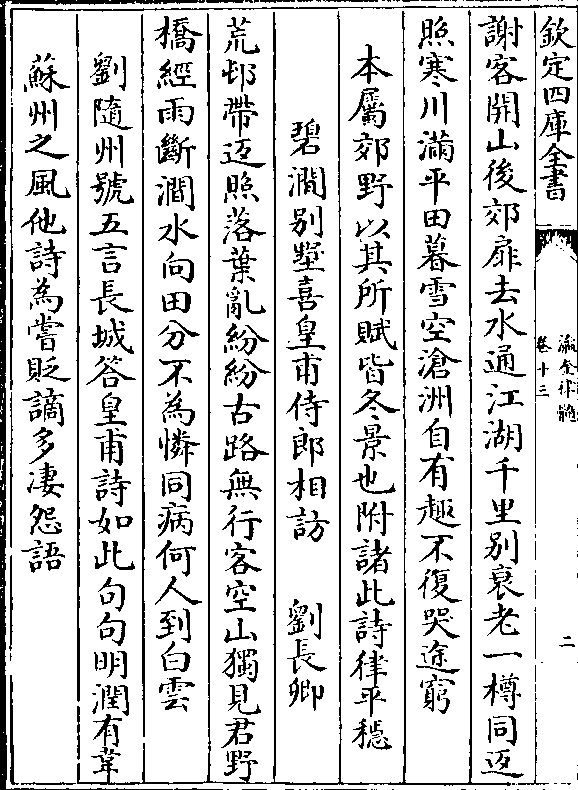 欽定四庫全書
瀛奎律髓
卷十三
二
謝客開山後郊扉去水通江湖千里别衰老一樽同迈
照寒川滿平田暮雪空滄洲自有趣不復哭途窮
本屬郊野以其所賦皆冬景也附諸此詩律平穩
碧澗别墅喜皇甫侍郎相訪　劉長卿
荒邨帶迈照落葉亂紛紛古路無行客空山獨見君野
橋經雨斷澗水向田分不為憐同病何人到白雲
劉隨州號五言長城答皇甫詩如此句句明潤有韋
蘇州之風他詩為嘗貶謫多凄怨語